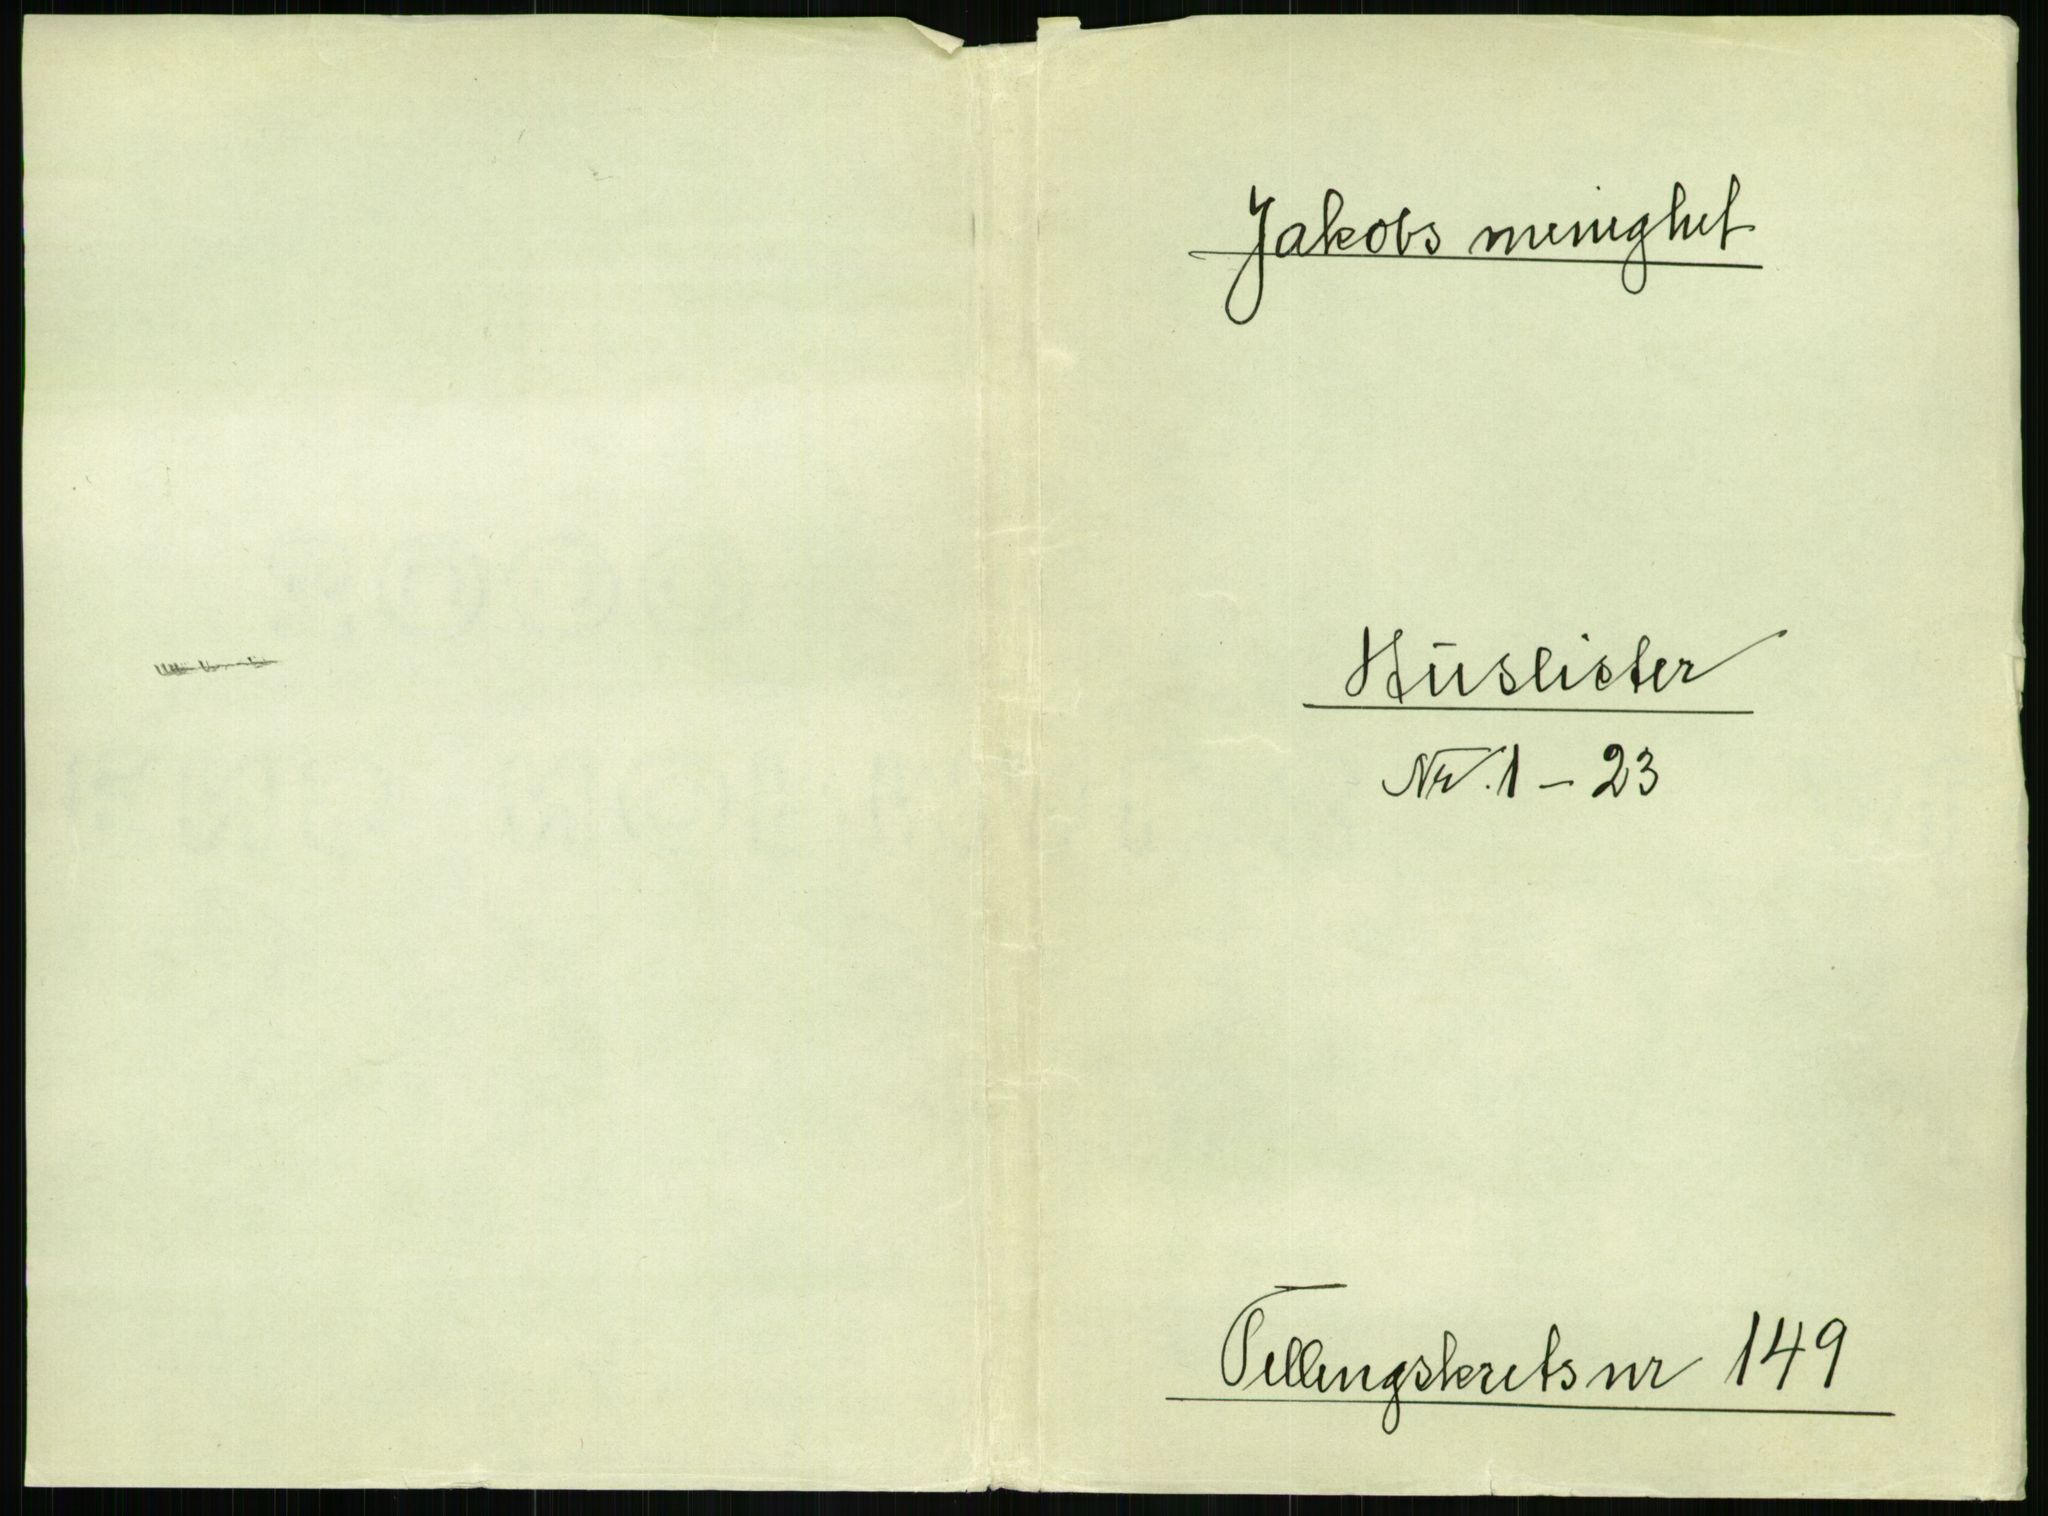 Jakobs menighet
Huslister
Nr. 1 - 23
Tellingskrets nr 149